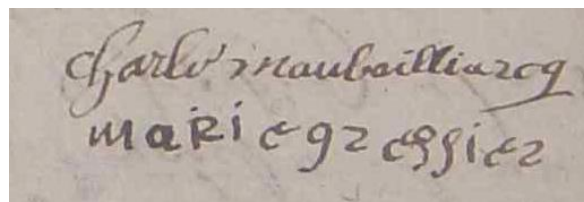 charle maubailliarcq
marie gressier